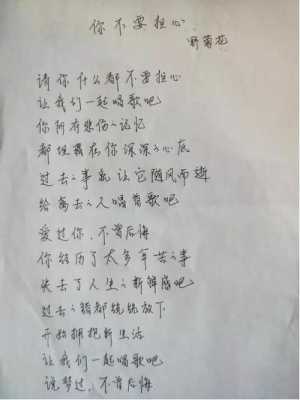 你不要担心
野菊花
请你什么都不要担心
让我们一起唱歌吧
你所有悲伤之记忆
都埋藏在你深深之心底
过去之事就让它随风而
给离去之人唱首歌吧
爱过你，不曾后悔
你经历了太多辛苦之事
失去了人生之新鲜感吧
过去之错都统统放下
开始拥抱新生活
让我们一起唱歌吧
说梦过，不曾后悔